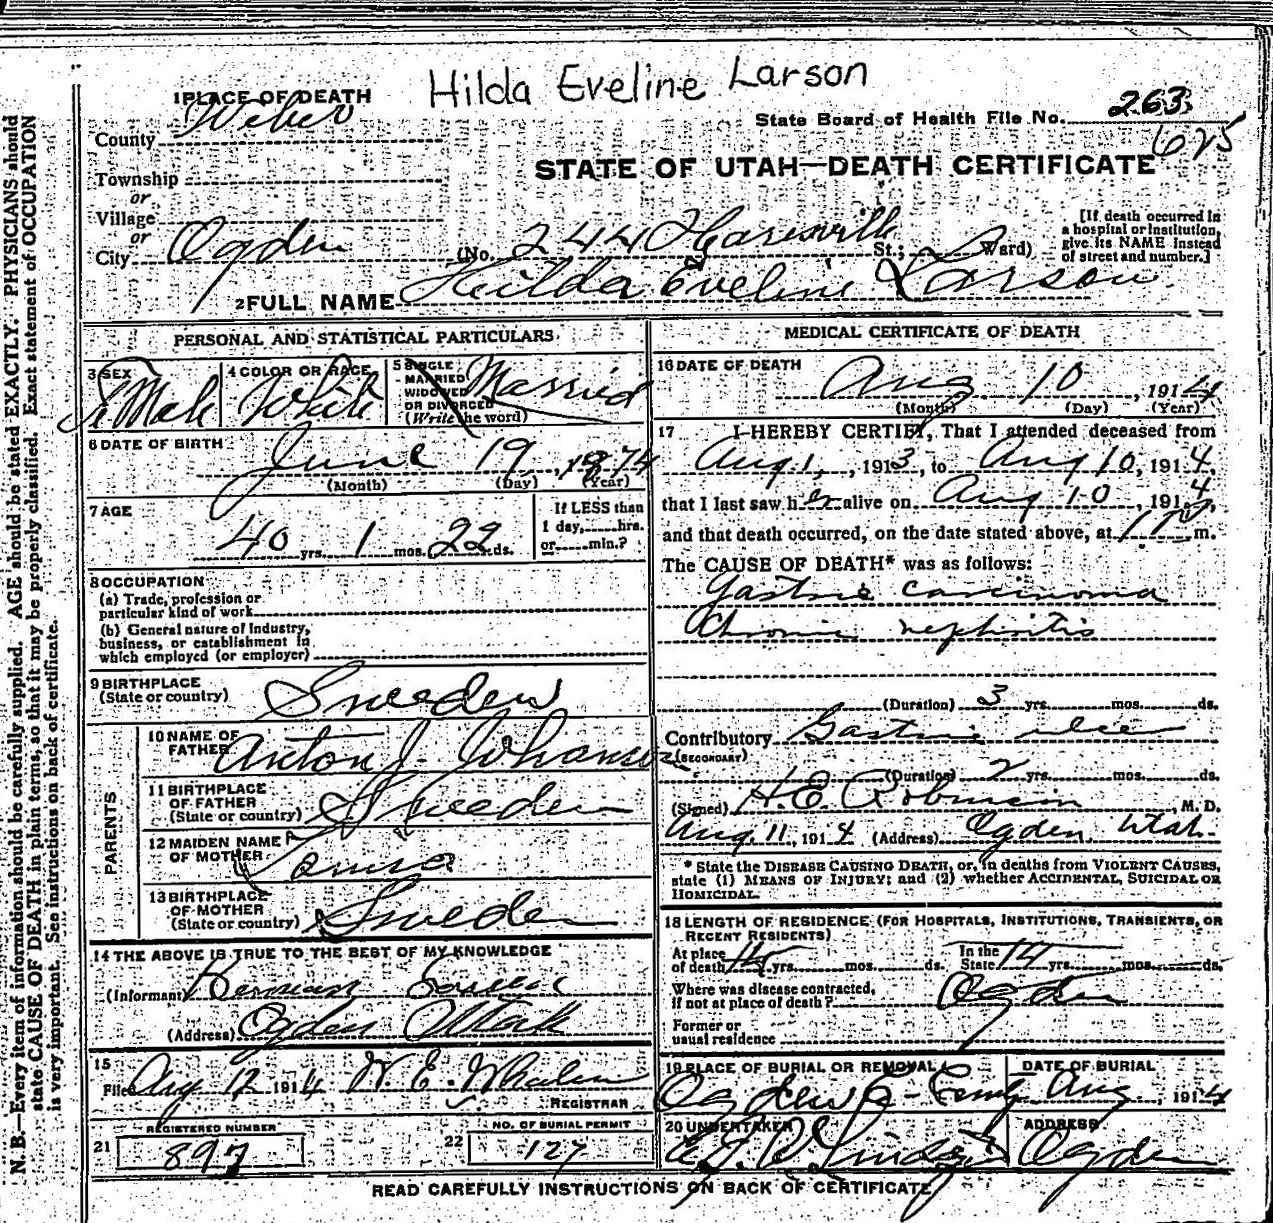 Hilda Eveline Larson
1 PLACE OF DEATH
County Weber
State Board of Health File No. 263
625
STATE OF UTAH—DEATH CERTIFICATE
Township
or
Village
or
City Ogden (No. 244 St.; Ward)
[If death occurred in a hospital or institution, give its NAME instead of street and number.]
2 FULL NAME Hilda Eveline Larson
PERSONAL AND STATISTICAL PARTICULARS
3 SEX Female
4 COLOR OR RACE White
5 SINGLE MARRIED WIDOWED OR DIVORCED (Write the word) Married
6 DATE OF BIRTH June 19, 1874
(Month) (Day) (Year)
7 AGE 40 yrs. 1 mos. 22 ds.
If LESS than 1 day, hrs. or min.?
8 OCCUPATION
(a) Trade, profession or particular kind of work
(b) General nature of Industry, business, or establishment in which employed (or employer)
9 BIRTHPLACE (State or country) Sweeden
PARENTS
10 NAME OF FATHER Anton J. Johanson
11 BIRTHPLACE OF FATHER (State or country) Sweeden
12 MAIDEN NAME OF MOTHER
13 BIRTHPLACE OF MOTHER (State or country) Sweden
14 THE ABOVE IS TRUE TO THE BEST OF MY KNOWLEDGE
(Informant) Herman
(Address) Ogden Utah
15
Filed Aug 12 1914 W. E. Whalen
REGISTRAR
21 REGISTERED NUMBER 897
22 NO. OF BURIAL PERMIT 127
MEDICAL CERTIFICATE OF DEATH
16 DATE OF DEATH Aug 10, 1914
(Month) (Day) (Year)
17 I HEREBY CERTIFY, That I attended deceased from
Aug 1, 1913, to Aug 10, 1914,
that I last saw h er alive on Aug 10, 1914
and that death occurred, on the date stated above, at m.
The CAUSE OF DEATH* was as follows:
Gastric carcinoma
Chronic nephritis
(Duration) 3 yrs. mos. ds.
Contributory Gastric ulcer
(SECONDARY)
(Duration) 2 yrs. mos. ds.
(Signed) H. C. Robinson, M. D.
Aug. 11, 1914 (Address) Ogden Utah
* State the DISEASE CAUSING DEATH, or, in deaths from VIOLENT CAUSES, state (1) MEANS OF INJURY; and (2) whether ACCIDENTAL, SUICIDAL OR HOMICIDAL.
18 LENGTH OF RESIDENCE (FOR HOSPITALS, INSTITUTIONS, TRANSIENTS, OR RECENT RESIDENTS)
At place of death 14 yrs. mos. ds. In the State 14 yrs. mos. ds.
Where was disease contracted, if not at place of death? Ogden
Former or usual residence
19 PLACE OF BURIAL OR REMOVAL Ogden C-
DATE OF BURIAL Aug 1914
20 UNDERTAKER
ADDRESS Ogden
READ CAREFULLY INSTRUCTIONS ON BACK OF CERTIFICATE
N. B.—Every item of information should be carefully supplied. AGE should be stated EXACTLY. PHYSICIANS should
state CAUSE OF DEATH in plain terms, so that it may be properly classified. Exact statement of OCCUPATION
is very important. See instructions on back of certificate.